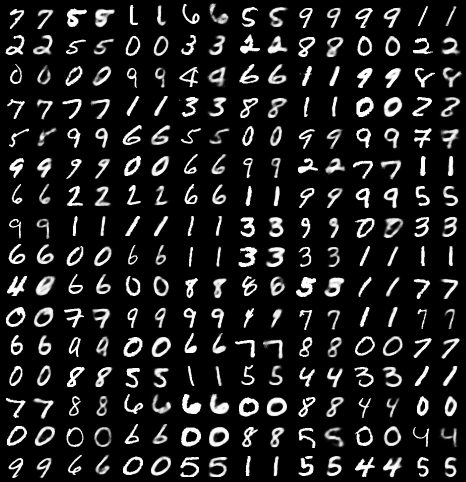 7 7 8 8 1 1 6 6 5 5 9 9 9 9 1 1
2 2 5 5 0 0 3 3 2 2 8 8 0 0 2 2
0 0 0 0 9 9 4 4 6 6 1 1 9 9 8 8
7 7 7 7 1 1 3 3 8 8 1 1 0 0 2 8
5 8 9 9 6 6 5 5 0 0 9 9 9 9 7 7
9 9 9 9 0 0 6 6 9 9 2 2 7 7 1 1
6 6 2 2 2 2 6 6 1 1 9 9 9 9 5 5
9 9 1 1 1 1 1 1 3 3 9 9 0 0 3 3
6 6 0 0 6 6 1 1 3 3 3 3 1 1 1 1
4 0 6 6 0 0 8 8 8 8 5 3 1 1 7 7
0 0 7 7 9 9 9 9 9 9 7 7 1 1 7 7
6 6 9 9 0 0 6 6 7 7 8 8 0 0 7 7
0 0 8 8 5 5 1 1 5 5 4 4 3 3 1 1
7 7 8 8 6 6 6 6 0 0 8 8 4 4 0 0
0 0 0 0 6 6 0 0 8 8 5 5 0 0 4 4
9 9 6 6 0 0 5 5 1 1 5 5 4 4 5 5